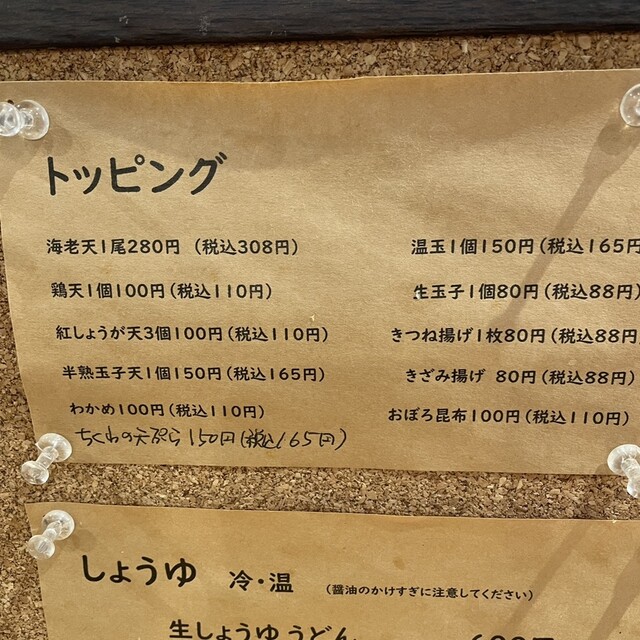 トッピング
海老天1尾280円 (税込308円)
鶏天1個100円(税込110円)
紅しょうが天3個100円(税込110円)
半熟玉子天1個150円(税込165円)
わかめ100円(税込110円)
ちくわの天ぷら150円(税込165円)
温玉1個150円(税込165円
生玉子1個80円(税込88円)
きつね揚げ1枚80円(税込88円
きざみ揚げ 80円(税込88円)
おぼろ昆布100円(税込110円)
しょうゆ 冷・温 (醤油のかけすぎに注意してください)
生しょうゆうどん